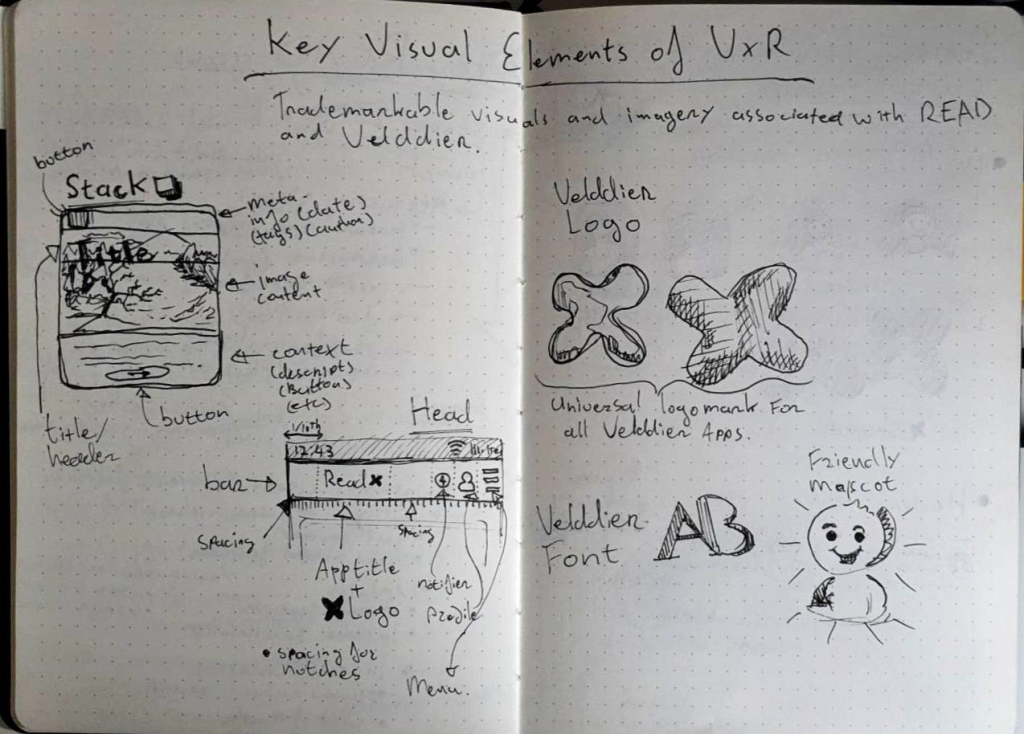 Key Visual Elements of VxR
Trademarkable visuals and imagery associated with READ
and Velddier.
button
Stack
meta-
info (date)
(tags) (author)
Title
image
content
context
(descript)
(Button)
(etc)
button
title/
header
Head
12:43
bar
Read
spacing
spacing
App title
+
Logo
notifier
profile
• spacing for
notches
Menu.
Velddier
Logo
Universal logomark For
all Velddier Apps.
Friendly
mascot
Velddier
Font
AB